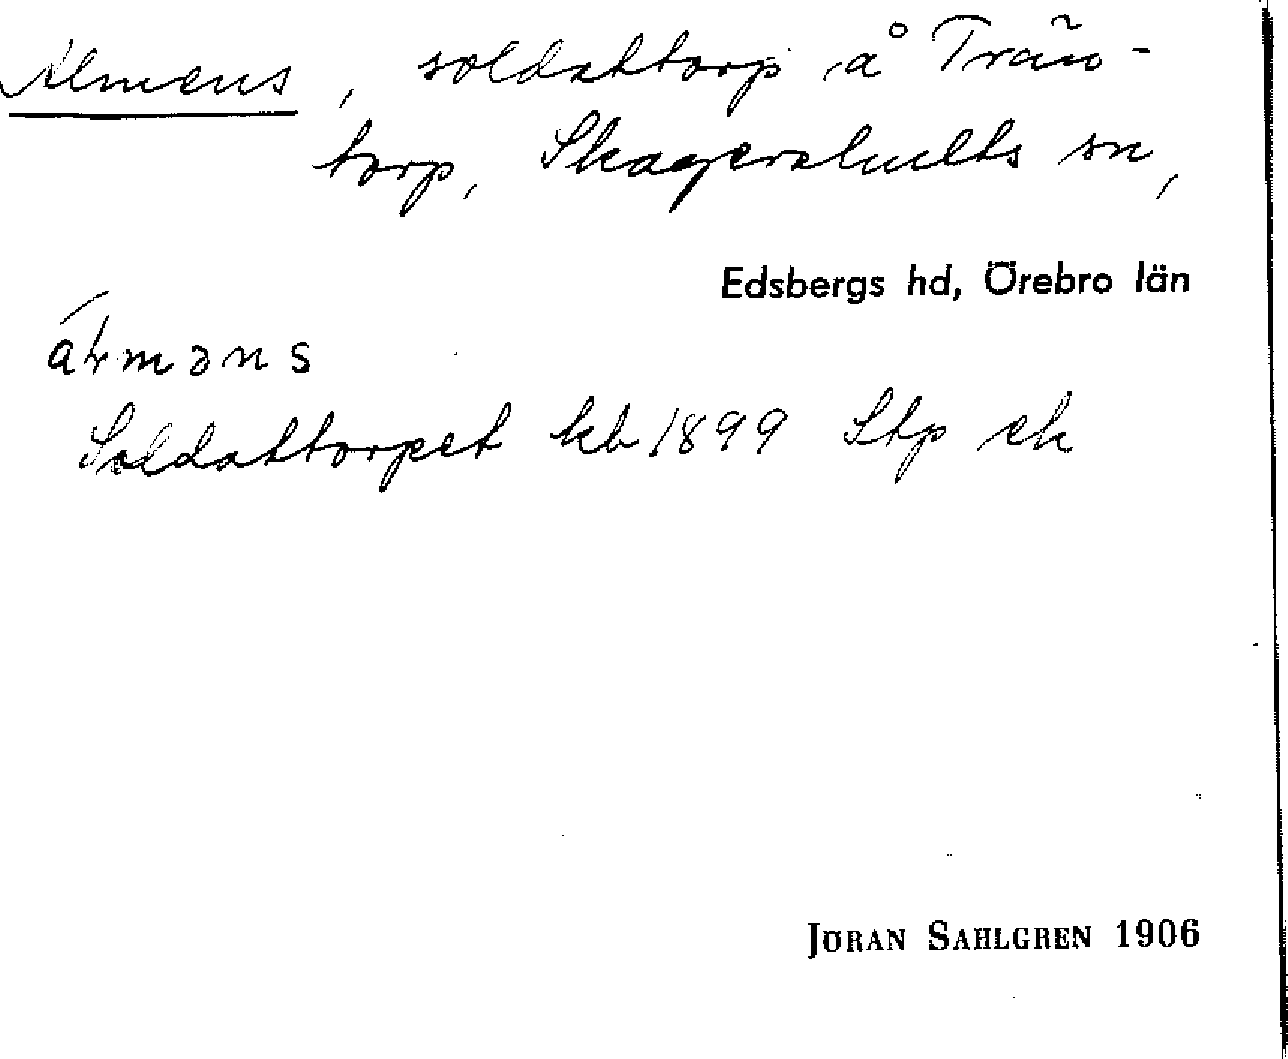 Almens, soldattorp å Trän-
torp, Skagershults sn,
Edsbergs hd, Örebro län
áɫməns
Soldattorpet kb 1899 Stp ek
JÖRAN SAHLGREN 1906